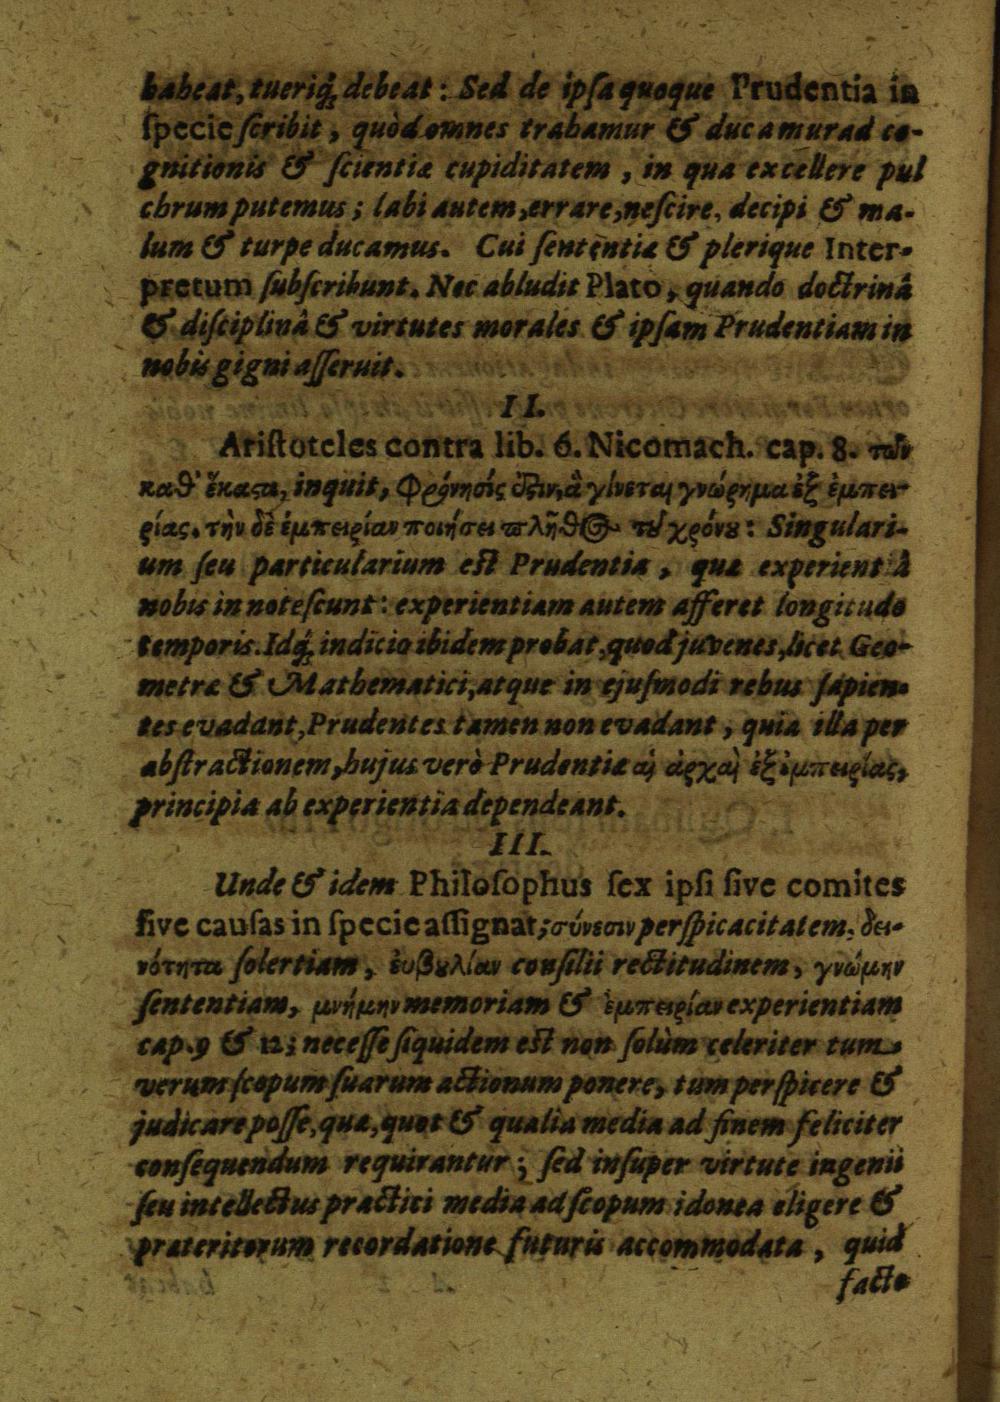 habeat, tueriq́; debeat : Sed de ipſa quoque Prudentia in
ſpecie ſcribit, quòd omnes trahamur & ducamur ad co-
gnitionis & ſcientiæ cupiditatem, in qua excellere pul
chrum putemus; labi autem, errare, neſcire, decipi & ma-
lum & turpe ducamus. Cui ſententiæ & plerique Inter-
pretum ſubſcribunt. Nec abludit Plato, quando doctrinâ
& diſciplinâ & virtutes morales & ipſam Prudentiam in
nobis gigni aſſeruit.
II.
Ariſtoteles contra lib. 6. Nicomach. cap. 8. τῶν
καθ᾽ ἕκαςα, inquit, Φρόνησίς ἐςιν, ἃ γίνεται γνώριμα ἐξ ἐμπει-
ρίας. τὴν δὲ ἐμπειρίαν ποιήσει πλῆθος τȣ χρόνȣ: Singulari-
um ſeu particularium eſt Prudentia, quæ experientiâ
nobis innoteſcunt: experientiam autem afferet longitudo
temporis. Idq́; indicio ibidem probat, quod juvenes, licet Geo-
metræ & Mathematici, atque in ejuſmodi rebus ſapien-
tes evadant, Prudentes tamen non evadant, quia illa per
abſtractionem, hujus verò Prudentiæ αἱ ἀρχαὶ ἐξ ἐμπειρίας,
principia ab experientia dependeant.
III.
Unde & idem Philoſophus ſex ipſi ſive comites
ſive cauſas in ſpecie aſſignat; σύνεσιν perſpicacitatem, δει-
νότητα ſolertiam, ἐυβȣλίαν conſilii rectitudinem, γνώμην
ſententiam, μνήμην memoriam & ἐμπειρίαν experientiam
cap. 9 & 12; neceſſe ſiquidem eſt non ſolùm celeriter tum
verum ſcopum ſuarum actionum ponere, tum perſpicere &
judicare poſſe, quæ, quot & qualia media ad finem feliciter
conſequendum requirantur; ſed inſuper virtute ingenii
ſeu intellectus practici media ad ſcopum idonea eligere &
præteritorum recordatione futuris accommodata, quid
facto